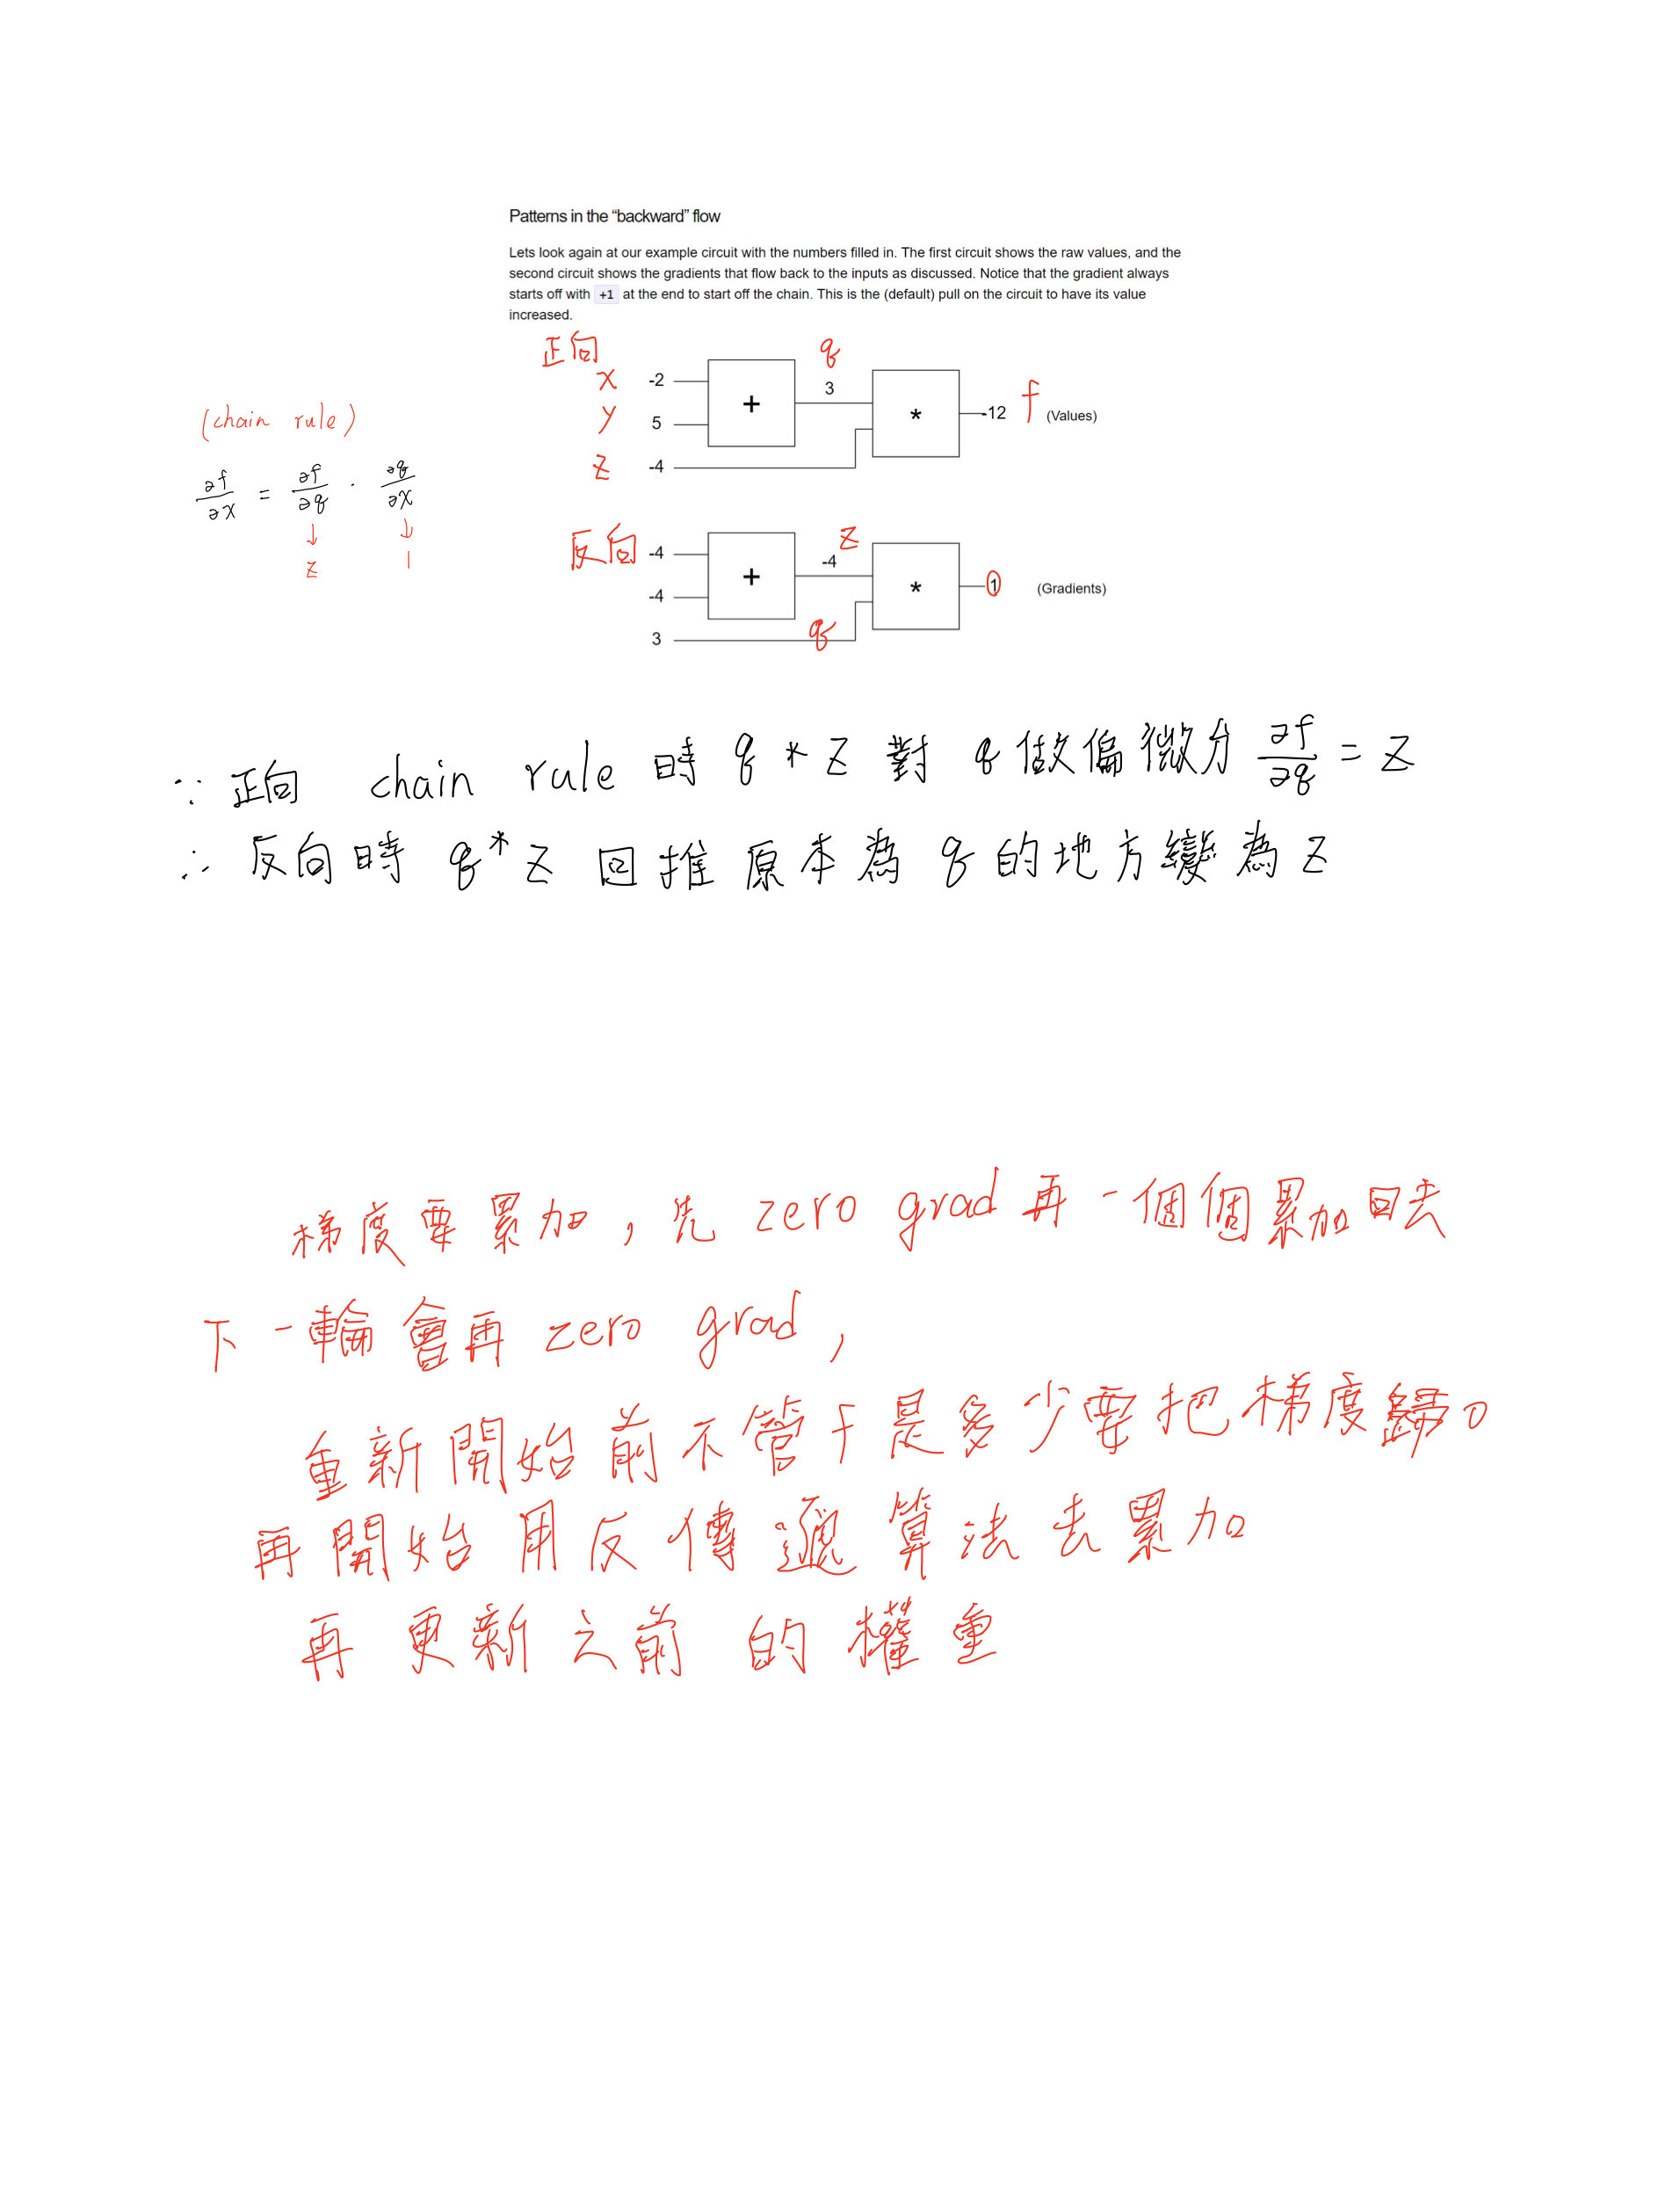 Patterns in the “backward” flow
Lets look again at our example circuit with the numbers filled in. The first circuit shows the raw values, and the
second circuit shows the gradients that flow back to the inputs as discussed. Notice that the gradient always
starts off with +1 at the end to start off the chain. This is the (default) pull on the circuit to have its value
increased.
正向 q
x -2 + 3 * -12 f (Values)
y 5
z -4
(chain rule)
∂f/∂x = ∂f/∂q · ∂q/∂x
↓ ↓
z 1
反向 -4 + -4 z * 1 (Gradients)
-4
3 q
∵ 正向 chain rule 時 q * z 對 q 做偏微分 ∂f/∂q = z
∴ 反向時 q * z 回推原本為 q 的地方變為 z
梯度要累加, 先 zero grad 再一個個累加回去
下一輪會再 zero grad,
重新開始前不管 f 是多少要把梯度歸0
再開始用反傳遞算法去累加
再更新之前的權重